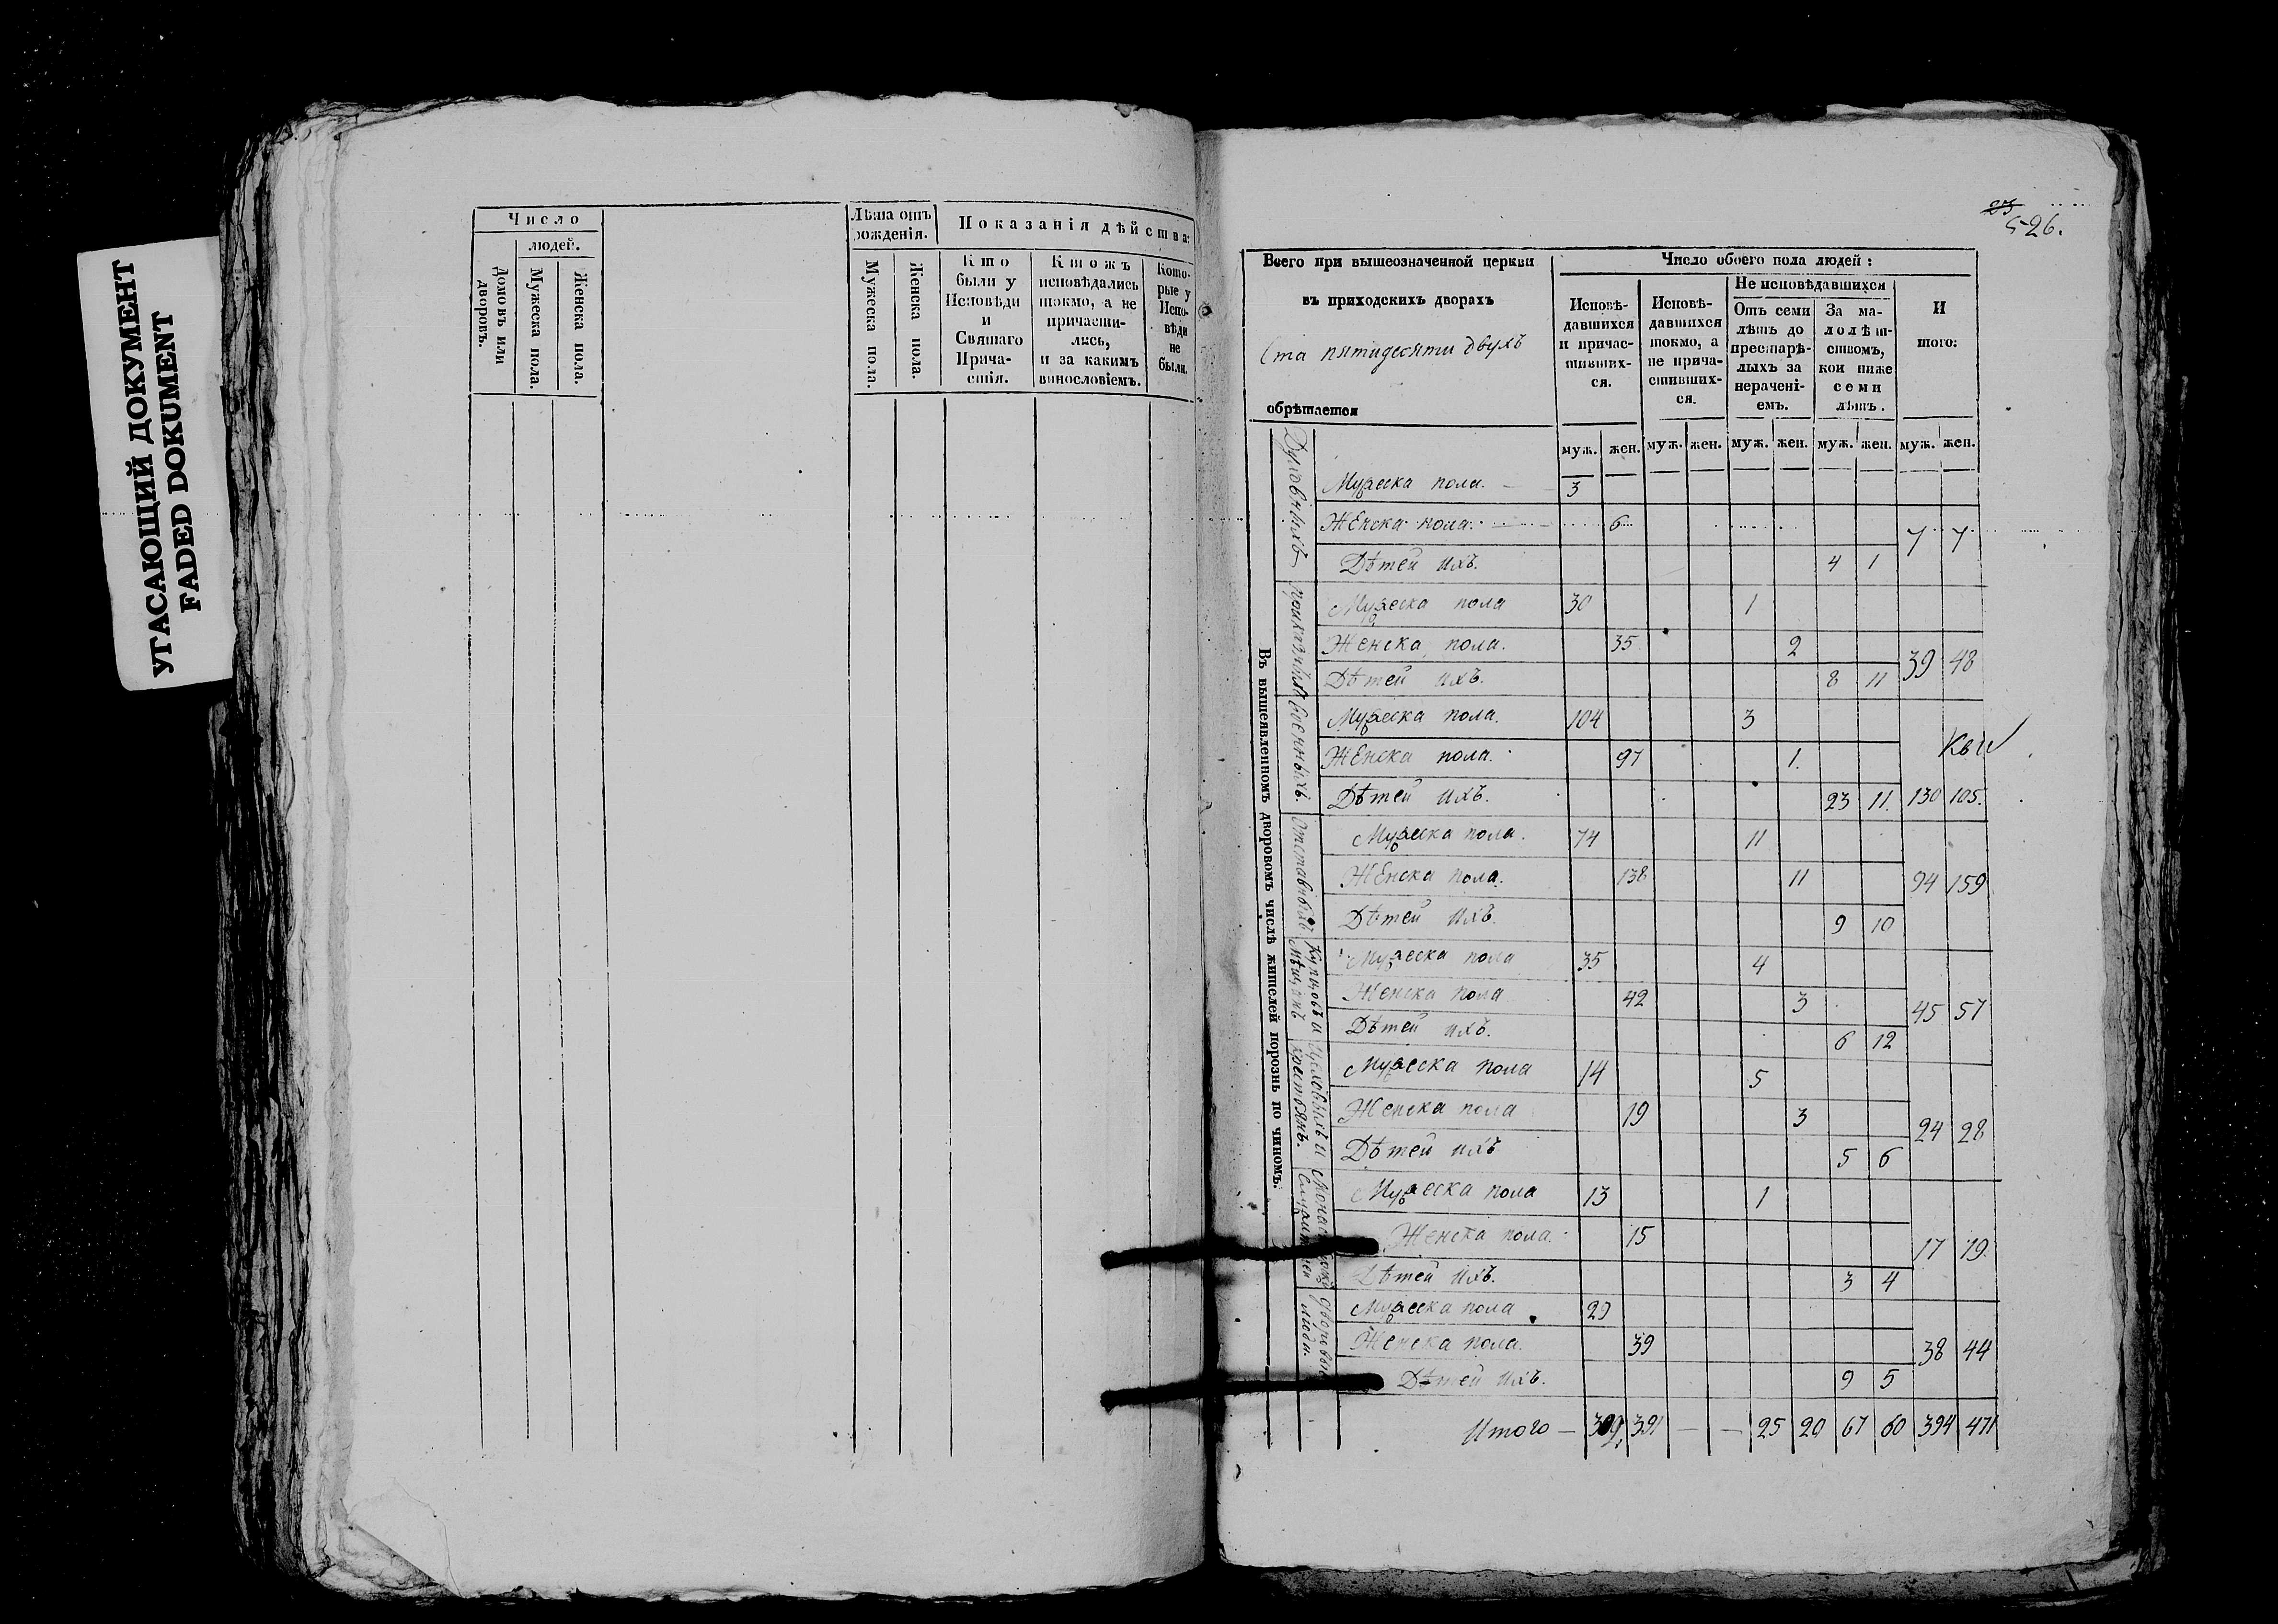 УГАСАЮЩИЙ ДОКУМЕНТ
FADED DOKUMENT
Число
людей.
Домовъ или дворовъ.
Мужеска пола.
Женска пола.
Лѣта отъ рожденія.
Мужеска пола.
Женска пола.
Показанія дѣйства:
Кто были у Исповѣди и Святаго Прича-стія.
Ктожъ исповѣдались токмо, а не причасти-лись, и за какимъ винословіемъ.
Кото-рые у Испо-вѣди не были.
23
526.
Всего при вышеозначенной церкви
въ приходскихъ дворахъ
Ста пятидесяти двухъ
обрѣтается
Число обоего пола людей:
Исповѣ-давшихся и причас-тивших-ся.
Исповѣ-давшихся токмо, а не прича-стивших-ся.
Не исповѣдавшихся
Отъ семи лѣтъ до престарѣ-лыхъ за нерачені-емъ.
За ма-лолѣт-ствомъ, кои ниже семи лѣтъ.
И того:
муж. жен. муж. жен. муж. жен. муж. жен. муж. жен.
Въ вышеявленномъ дворовомъ числѣ жителей порознь по чиномъ.
Духовныхъ
Мужеска пола. 3
Женска пола. 6 7 7
Дѣтей ихъ. 4 1
Мужеска пола 30 1
Женска пола. 35 2
Дѣтей ихъ. 8 11 39 48
Военныхъ.
Мужеска пола. 104 3
Женска пола. 97 1.
Дѣтей ихъ. 23 11. 130 105.
Отставныхъ
Мужеска пола. 74 11
Женска пола. 138 11 94 159
Дѣтей ихъ. 9 10
Купцовъ и Мѣщанъ
Мужеска пола 35 4
Женска пола 42 3 45 57
Дѣтей ихъ. 6 12
крестьянъ.
Мужеска пола 14 5
Женска пола 19 3 24 28
Дѣтей ихъ 5 6
Мужеска пола 13 1
Женска пола. 15 17 19.
Дѣтей ихъ. 3 4
люди.
Мужеска пола 29
Женска пола. 39 38 44
Дѣтей ихъ. 9 5
Итого — 391 — — 25 20 67 60 394 471